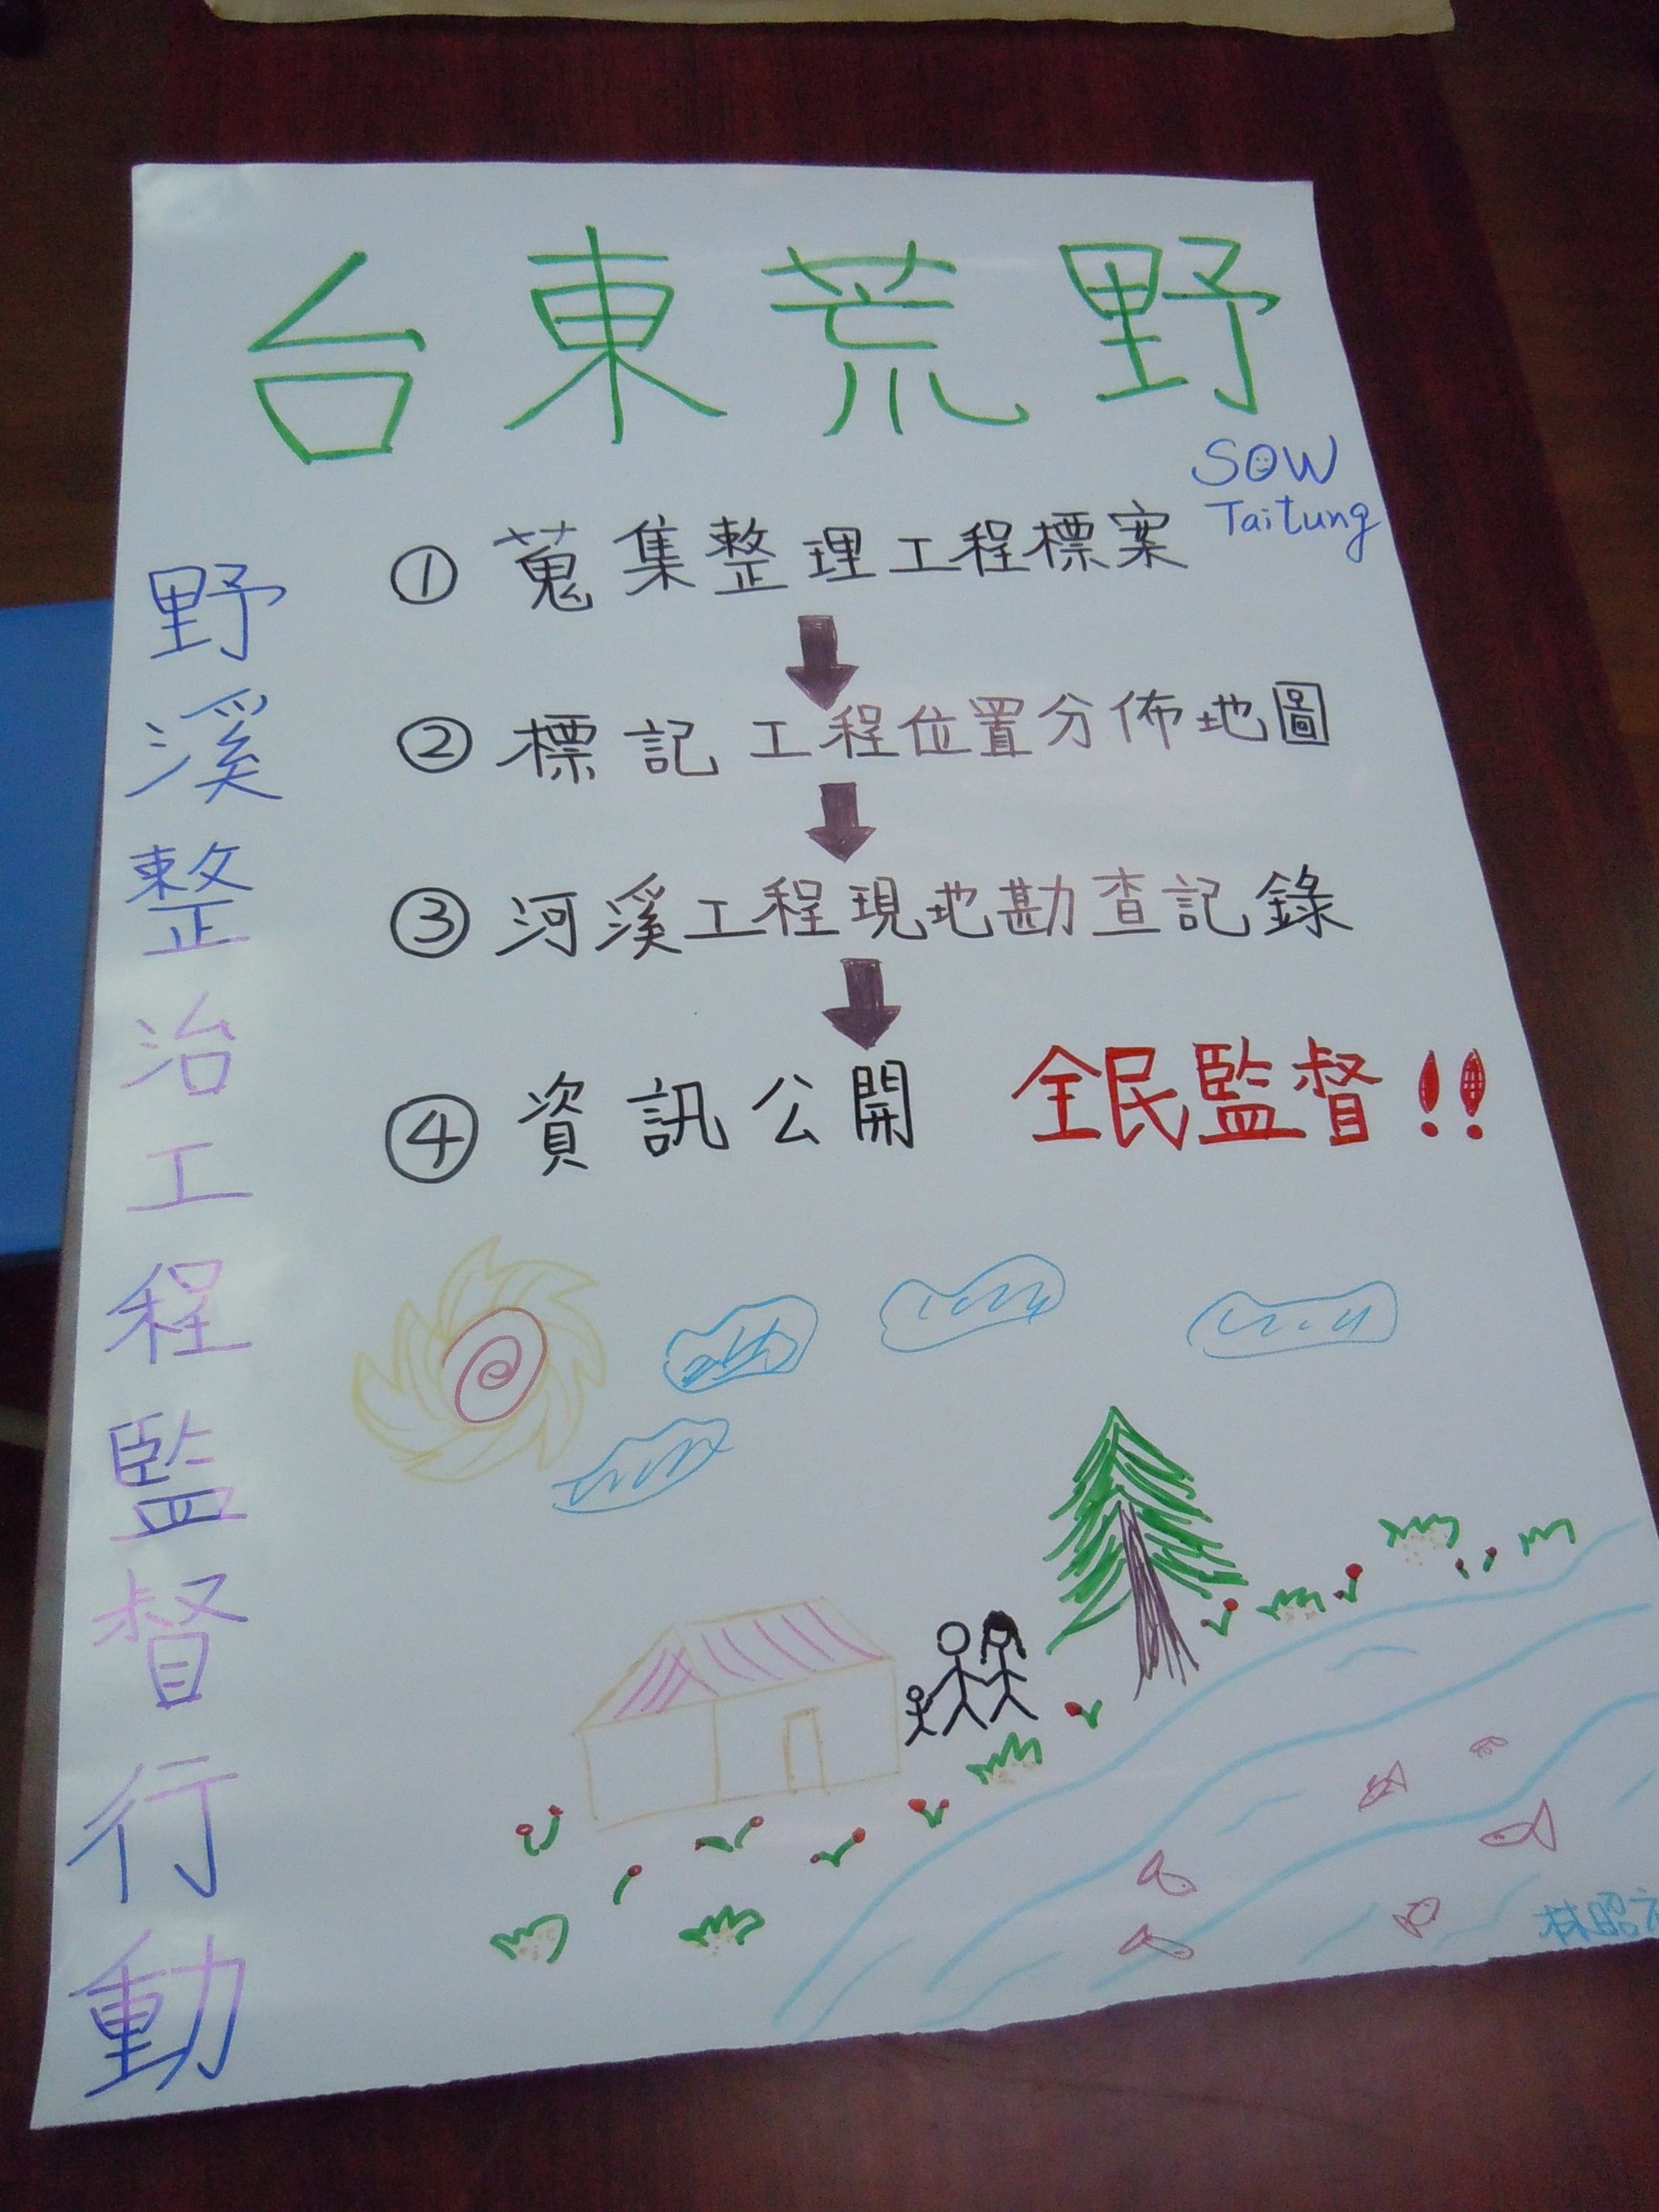 台東荒野
SOW
Taitung
野溪整治工程監督行動
① 蒐集整理工程標案
② 標記工程位置分佈地圖
③ 河溪工程現地勘查記錄
④ 資訊公開 全民監督!!
林昭